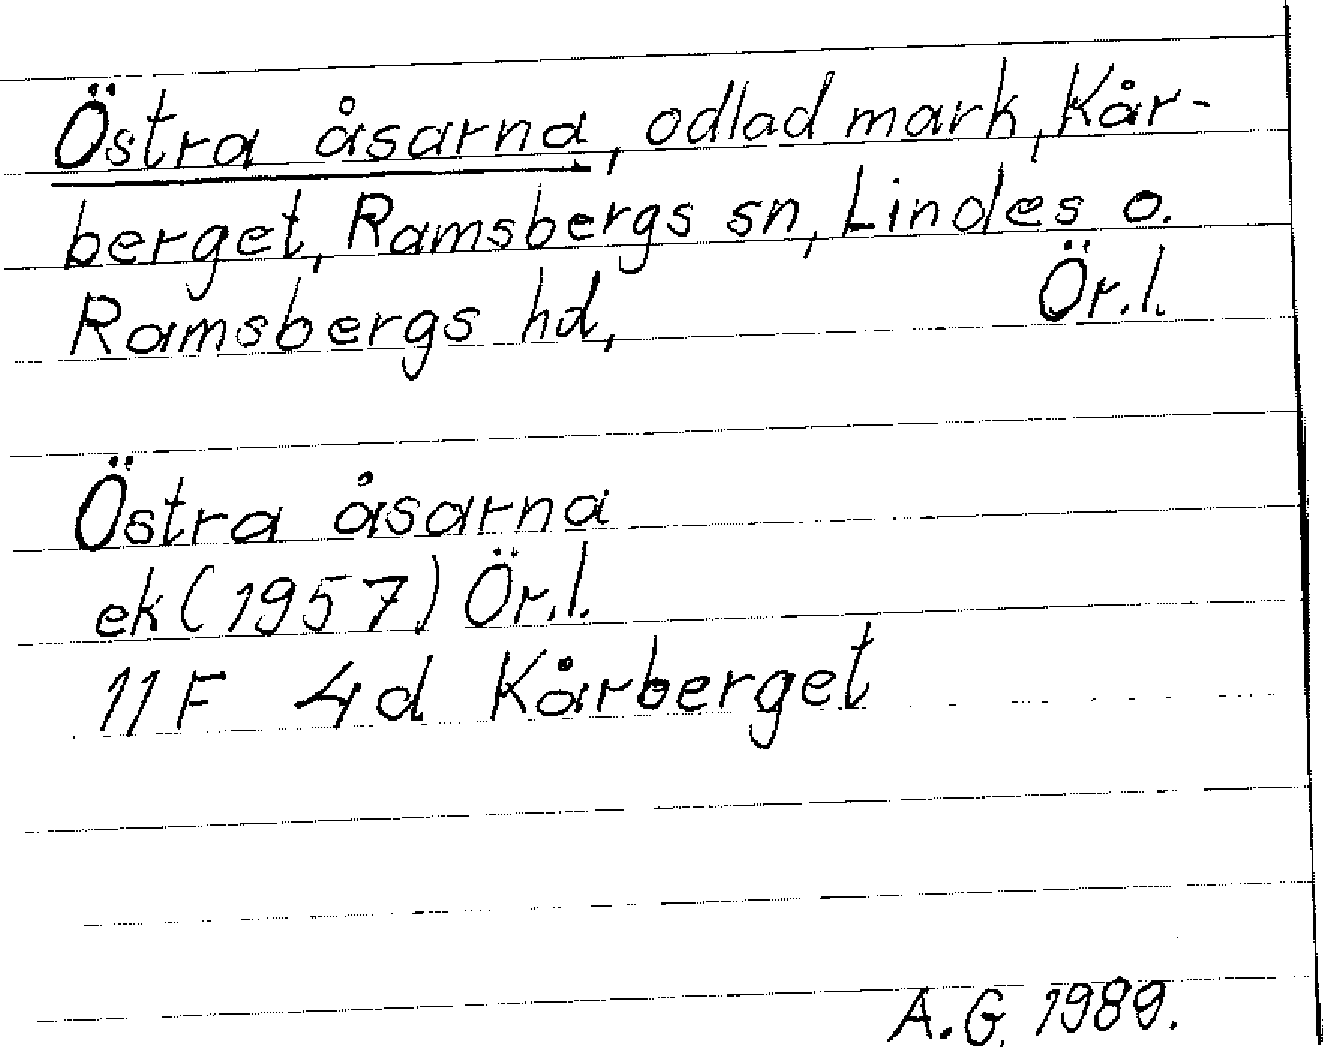 Östra åsarna, odlad mark, Kår-
berget, Ramsbergs sn, Lindes o.
Ramsbergs hd, Ör.l.
Östra åsarna
ek (1957) Ör.l.
11F 4d Kårberget
A.G. 1989.